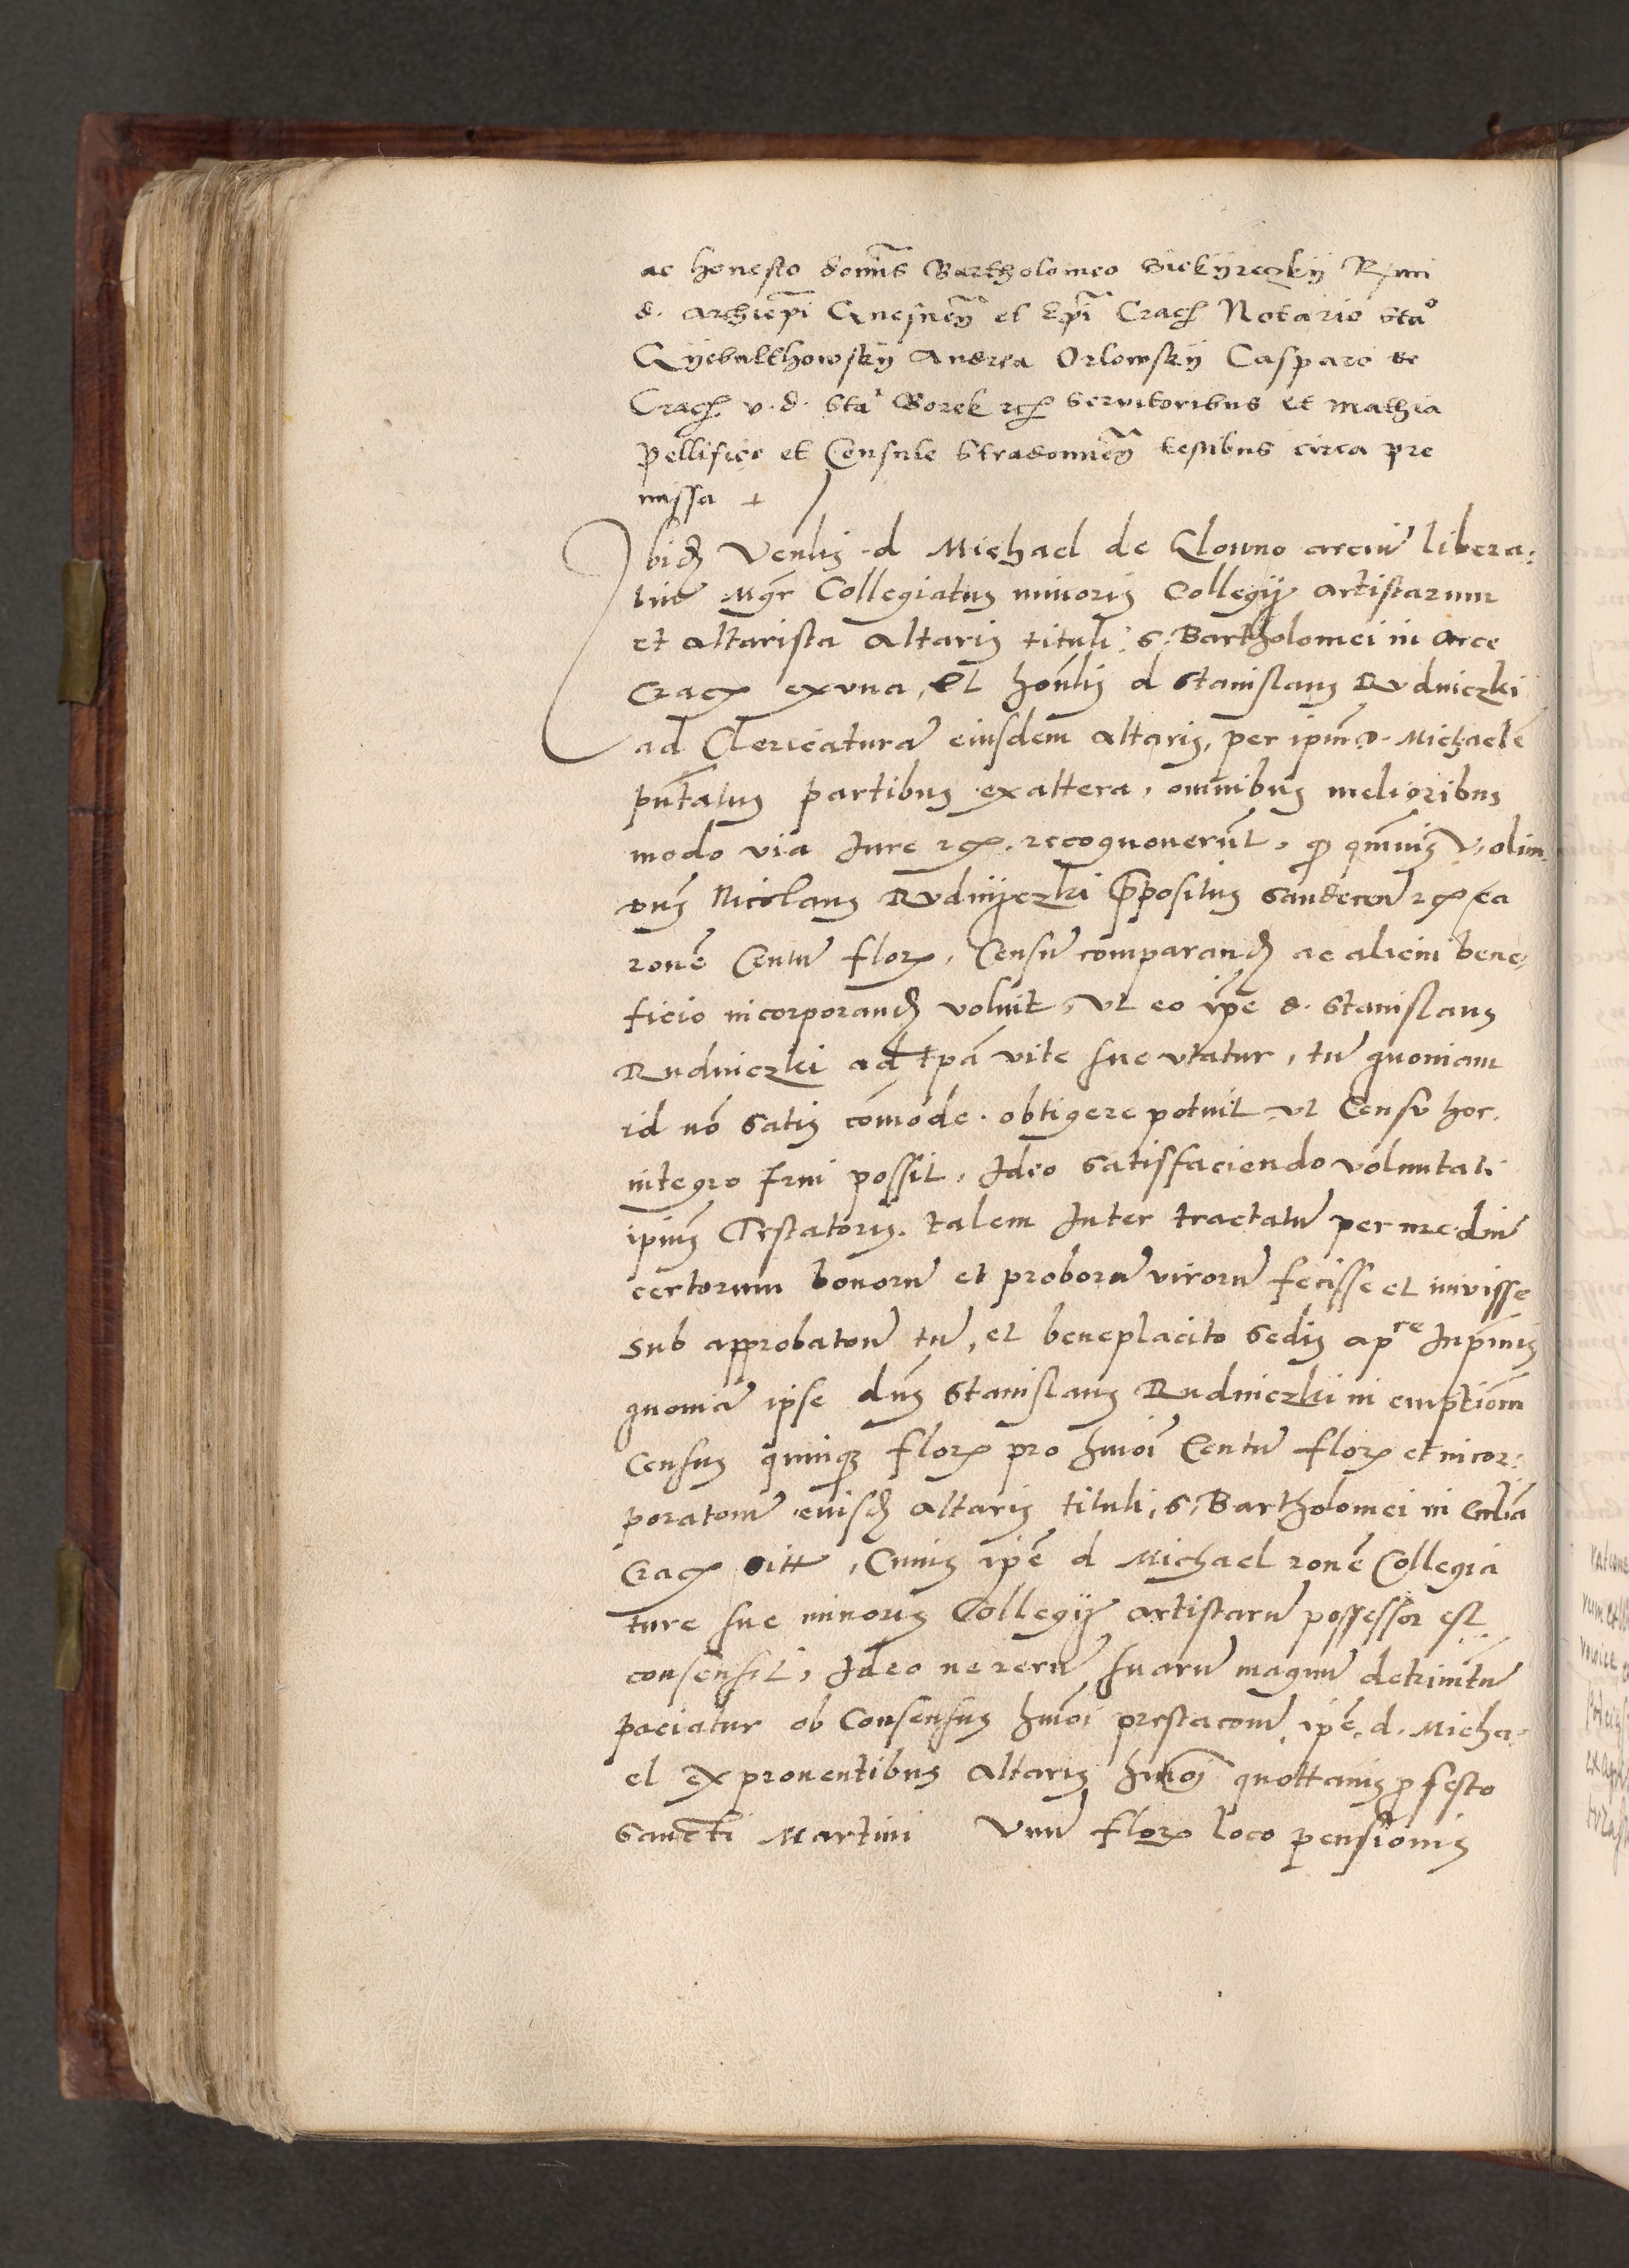 ac honesto domīs Bartholomeo Siekÿreczkÿ Rmi
d. archiepi Gnesneñ et Epi Cracoꝯ Notario Sta°
Gÿebulthowskÿ Andrea Orlowskÿ Casparo de
Cracꝯ v. d. Sta Borek rcꝯ Servitoribus et Mathia
Pellifice et Consule Stradomieñ testibus circa pre
missa +
Ibidꝫ Venlis d Michael de Clonno arciū libera:
liū Mgr Collegiatus minoris Collegij artistarum
et altarista altaris tituli S. Bartholomei in Arce
Cracꝯ ex vna, Et honlis d Stanislaus Rudniczki
ad Clericaturā eiusdem altaris, per ipm d. Michaelē
pūtatus partibus ex altera, omnibus melioribus
modo via Iure rcꝯ. recognouerūt, qͣ qmuis V. olim
dns Nicolaus Rudnijczki Ppositus Sandecen rcꝯ ea
ronē Centū florꝯ, Censū comparandꝫ ac alicui bene,
ficio incorporandꝫ voluit, vt eo ipe d. Stanislaus
Rudniczki ad tpā vite sue vtatur, tū quoniam
id nō satis cōmode obtigere potuit vt Censu hoc
integro frui possit, Ideo satisfaciendo voluntati
ipius Testatoris. talem Inter tractatū per mediū
certorum bonorū et proborū virorū fecisse et inivisse
sub approbatoñ tñ, et beneplacito Sedis apre Inpmis
quoniā ipse dns Stanislaus Rudniczki in emptiōm
Census quinqꝫ florꝯ pro hmōi Centū florꝯ et incor:
poratoñ eiusdꝫ altaris tituli, S. Bartholomei in Ecclia
Cracꝯ sitt, Cuius ipē d Michael ronē Collegia
ture sue minoris Collegij artistarū possessor est
consensit, Ideo ne rerū suarū magnū detrimētū
paciatur ob Consensus hmōi prestacoñ, ipē. d. Micha,
el ex prouentibus altaris hmōi quottanis p festo
Sancti Martini Vnū florꝯ loco pensionis